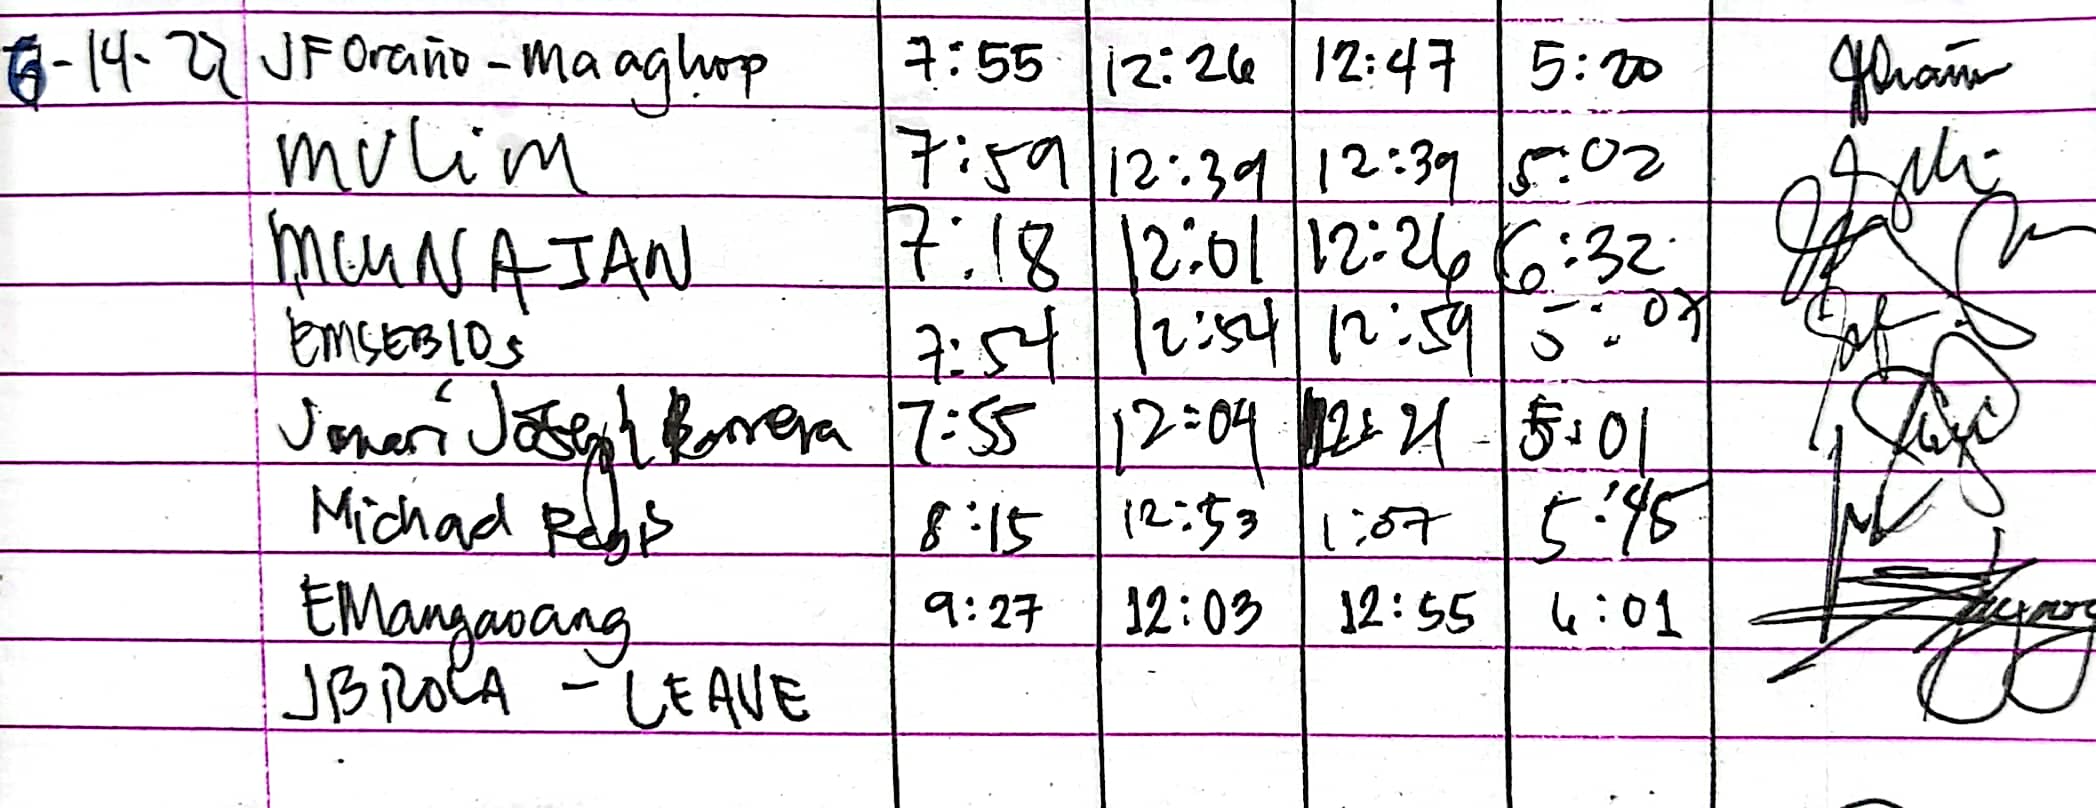 6-14-22 JFOraño - Maaghop 7:55 12:26 12:47 5:20
MVLim 7:59 12:39 12:39 5:02
MCUNAJAN 7:18 12:01 12:26 6:32
EMSEBIOS 7:54 12:54 12:59 5:07
Joseph Borrera 7:55 12:04 12:21 5:01
Michael Regis 8:15 12:53 1:07 5:45
EMangaoang 9:27 12:03 12:55 6:01
JBROLA - LEAVE